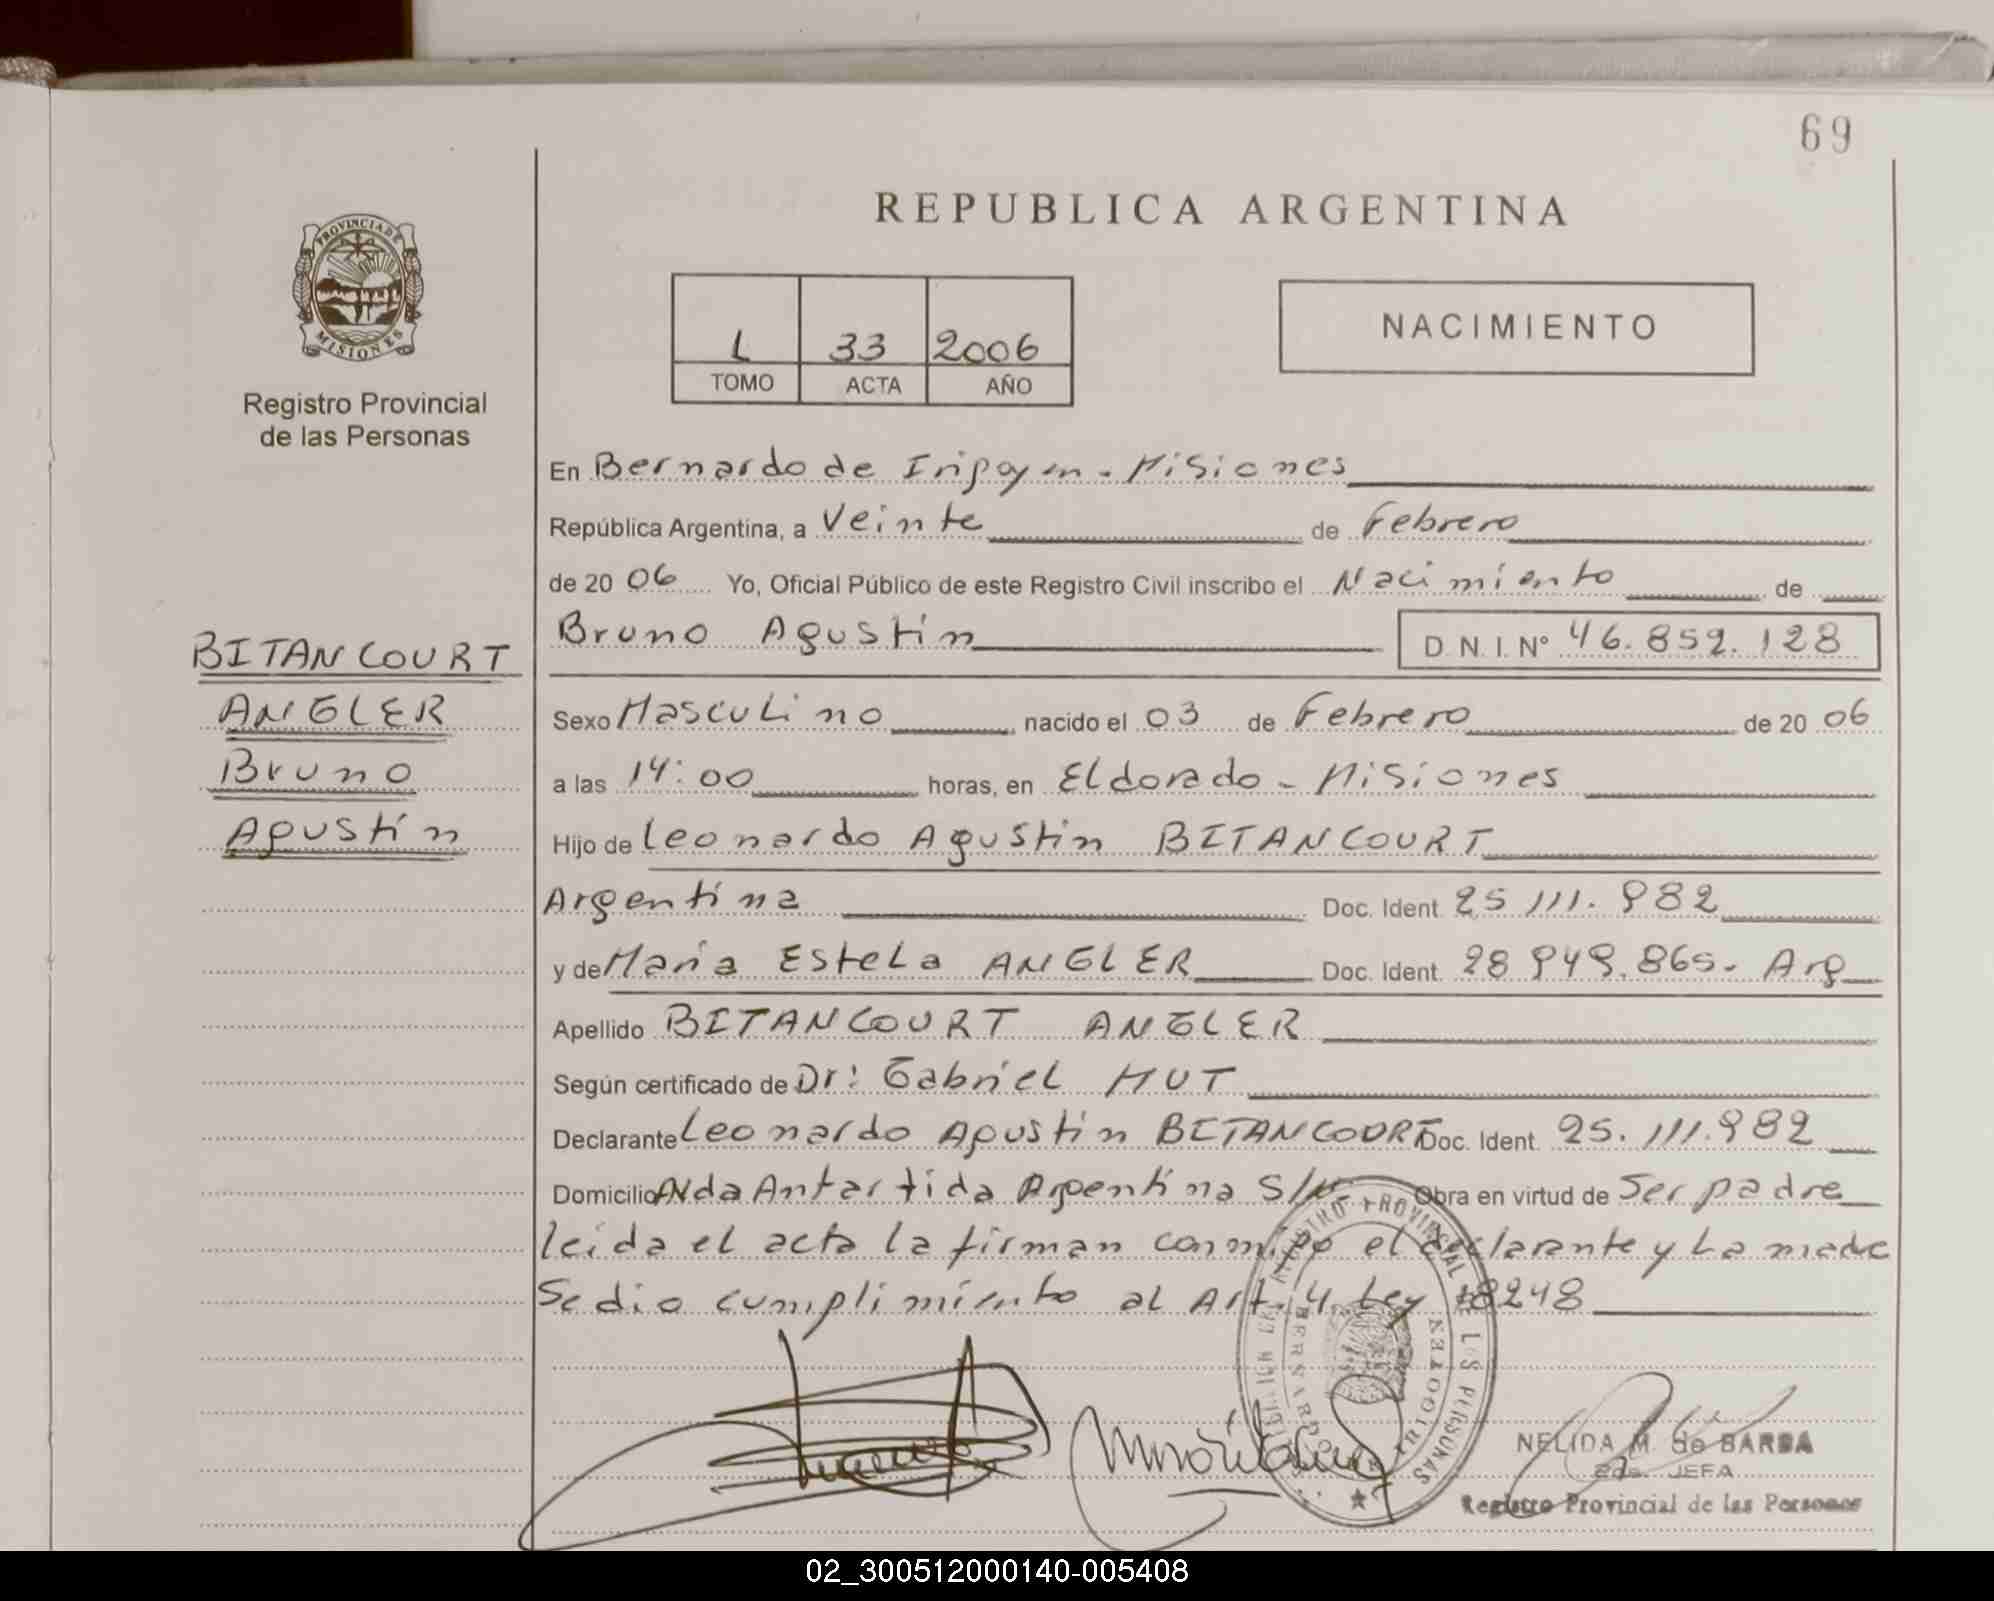 69
PROVINCIA DE
MISIONES
Registro Provincial
de las Personas
BITANCOURT
ANGLER
Bruno
Agustín
REPUBLICA ARGENTINA
L 33 2006
TOMO ACTA AÑO
NACIMIENTO
En Bernardo de Irigoyen - Misiones
República Argentina, a Veinte de Febrero
de 20 06 Yo, Oficial Público de este Registro Civil inscribo el Nacimiento de
Bruno Agustín D.N.I. Nº 46.852.128
Sexo Masculino nacido el 03 de Febrero de 20 06
a las 14:00 horas, en Eldorado - Misiones
Hijo de Leonardo Agustín BITANCOURT
Argentina Doc. Ident. 25.111.982
y de María Estela ANGLER Doc. Ident. 28.949.865- Arg
Apellido BITANCOURT ANGLER
Según certificado de Dr: Gabriel HUT
Declarante Leonardo Agustín BITANCOURT Doc. Ident. 25.111.982
Domicilio Avda Antartida Argentina S/Nº Obra en virtud de Ser padre
leida el acta la firman conmigo el declarante y la madre
Se dio cumplimiento al Art. 4 Ley 18248
REGISTRO PROVINCIAL DE LAS PERSONAS
BERNARDO
NELIDA M. de BARBA
2da. JEFA
Registro Provincial de las Personas
02_300512000140-005408